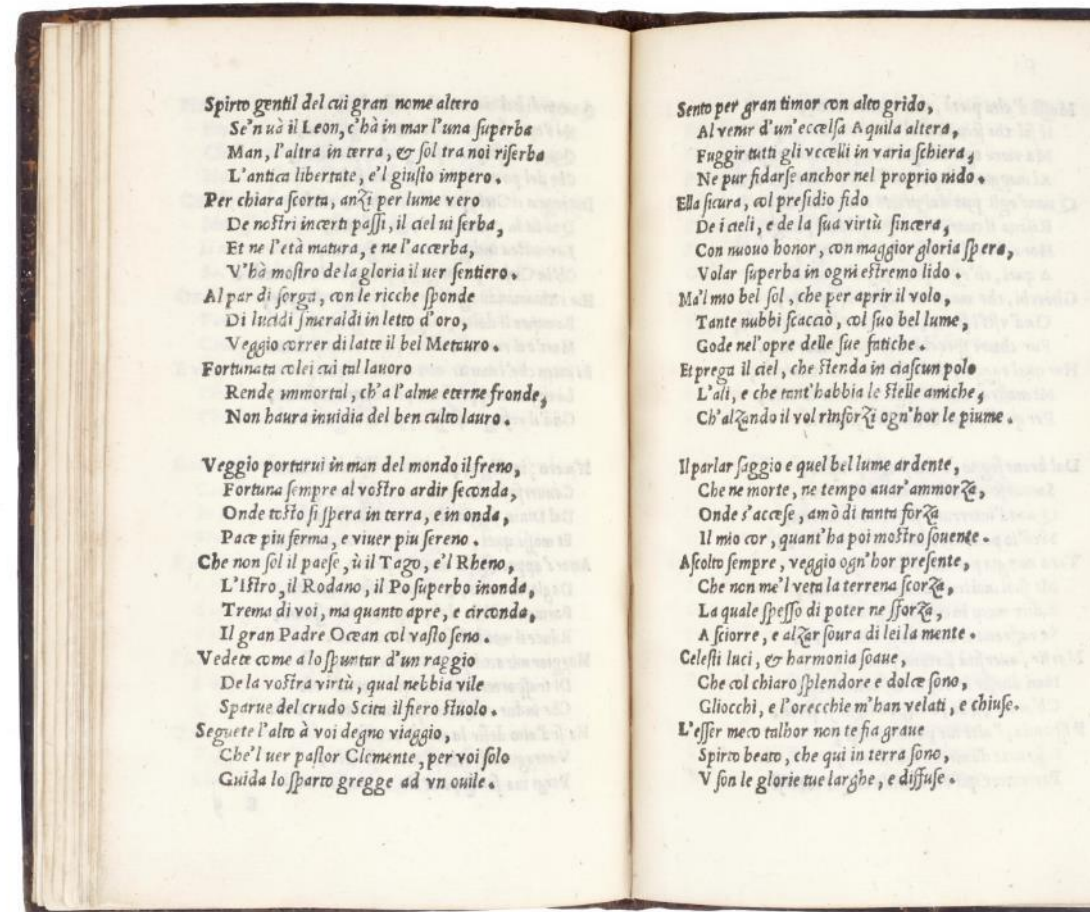 Spirto gentil del cui gran nome altero
Se'n uà il Leon, c'hà in mar l'una superba
Man, l'altra in terra, & sol tra noi riserba
L'antica libertate, e'l giusto impero.
Per chiara scorta, anzi per lume vero
De nostri incerti passi, il ciel ui serba,
Et ne l'età matura, e ne l'accerba,
V'hà mostro de la gloria il uer sentiero.
Al par di sorga, con le ricche sponde
Di lucidi smeraldi in letto d'oro,
Veggio correr di latte il bel Metauro.
Fortunata colei cui tal lauoro
Rende immortal, ch'a l'alme eterne fronde,
Non haura inuidia del ben culto lauro.
Veggio portarui in man del mondo il freno,
Fortuna sempre al vostro ardir seconda,
Onde tosto si spera in terra, e in onda,
Pace piu ferma, e viuer piu sereno.
Che non sol il paese, ù il Tago, e'l Rheno,
L'Istro, il Rodano, il Po superbo inonda,
Trema di voi, ma quanto apre, e circonda,
Il gran Padre Ocean col vasto seno.
Vedete come a lo spuntar d'un raggio
De la vostra virtù, qual nebbia vile
Sparue del crudo Scita il fiero stuolo.
Seguete l'alto à voi degno viaggio,
Che'l uer pastor Clemente, per voi solo
Guida lo sparto gregge ad vn ouile.
Sento per gran timor con alto grido,
Al venir d'un'eccelsa Aquila altera,
Fuggir tutti gli vccelli in varia schiera,
Ne pur fidarse anchor nel proprio nido.
Ella sicura, col presidio fido
De i cieli, e de la sua virtù sincera,
Con nuouo honor, con maggior gloria spera,
Volar superba in ogni estremo lido.
Ma'l mio bel sol, che per aprir il volo,
Tante nubbi scacciò, col suo bel lume,
Gode nel'opre delle sue fatiche.
Et prega il ciel, che stenda in ciascun polo
L'ali, e che tant'habbia le stelle amiche,
Ch'alzando il vol rinforzi ogn'hor le piume.
Il parlar saggio e quel bel lume ardente,
Che ne morte, ne tempo auar'ammorza,
Onde s'accese, amò di tanta forza
Il mio cor, quant'ha poi mostro souente.
Ascolto sempre, veggio ogn'hor presente,
Che non me'l veta la terrena scorza,
La quale spesso di poter ne sforza,
A sciorre, e alzar soura di lei la mente.
Celesti luci, & harmonia soaue,
Che col chiaro splendore e dolce sono,
Gliocchi, e l'orecchie m'han velati, e chiuse.
L'esser meco talhor non te fia graue
Spirto beato, che qui in terra sono,
V son le glorie tue larghe, e diffuse.